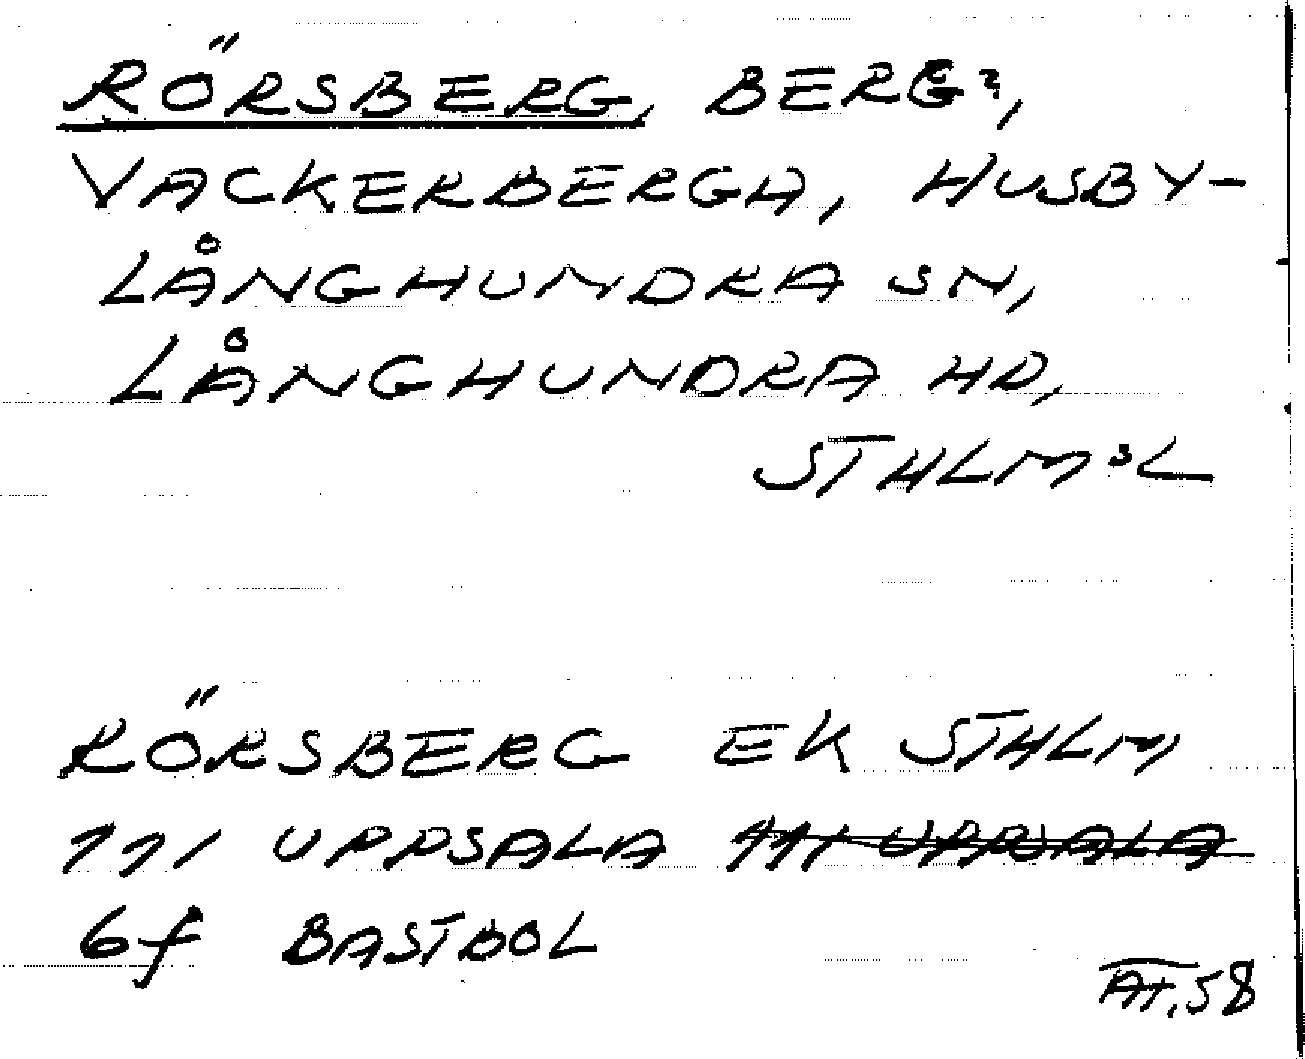 RÖRSBERG, BERG?,
VACKERBERGA, HUSBY-
LÅNGHUNDRA SN,
LÅNGHUNDRA HD,
STHLM:S L
RÖRSBERG EK STHLM
11I UPPSALA 11I UPPSALA
6f BASTBOL
AH.58